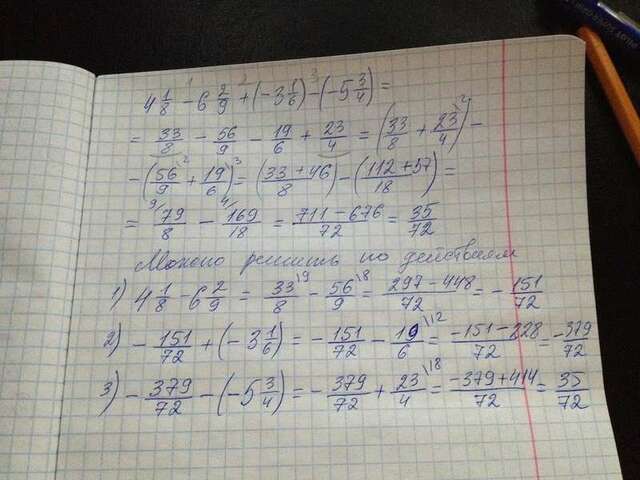 4 1/8 - 6 2/9 + (-3 1/6) - (-5 3/4) =
= 33/8 - 56/9 - 19/6 + 23/4 = (33/8 + 23/4 \2) -
- (56/9 \2 + 19/6 \3) = (33+46/8) - (112+57/18) =
= 9/ 79/8 - 4/ 169/18 = 711-676/72 = 35/72
Можно решить по действиям
1) 4 1/8 - 6 2/9 = 33/8 \9 - 56/9 \8 = 297-448/72 = - 151/72
2) - 151/72 + (-3 1/6) = - 151/72 - 19/6 \12 = -151-228/72 = -379/72
3) - 379/72 - (-5 3/4) = - 379/72 + 23/4 \18 = -379+414/72 = 35/72